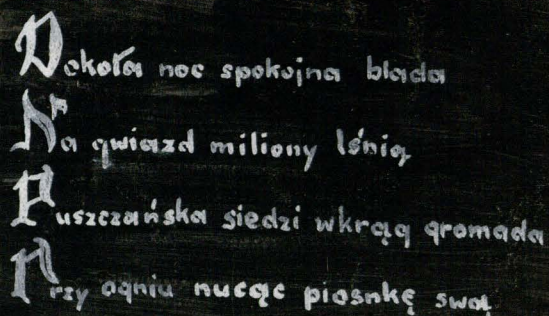 Dokoła noc spokojna blada
Na gwiazd miliony lśnią
Puszczańska siedzi wkrąg gromada
Przy ogniu nucąc piosnkę swą